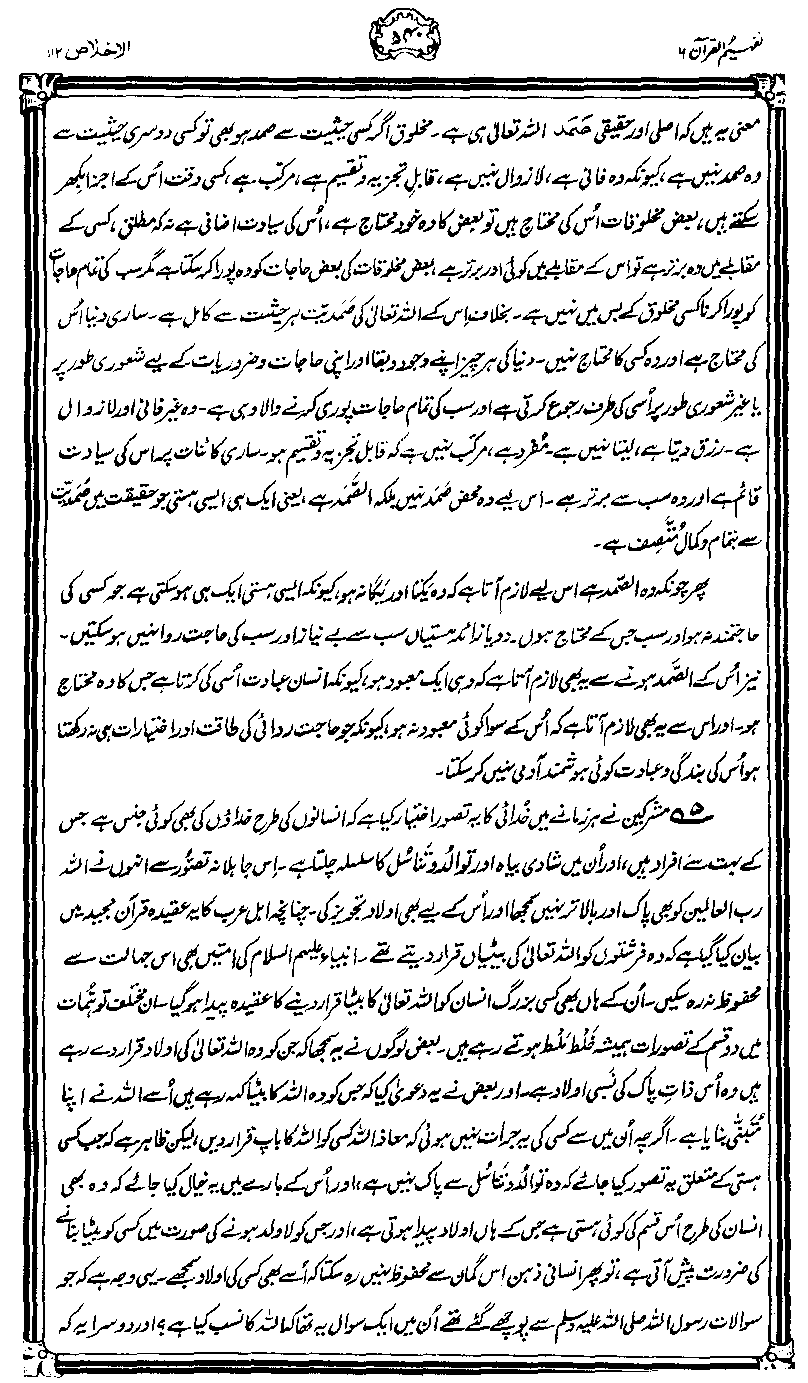 تفہیم القرآن ۶
۵۴۰
الاخلاص ۱۱۲
معنی یہ ہیں کہ اصلی اور حقیقی صَمَد اللہ تعالیٰ ہی ہے۔ مخلوق اگر کسی حیثیت سے صمد ہو بھی تو کسی دوسری حیثیت سے
وہ صمد نہیں ہے، کیونکہ وہ فانی ہے، لازوال نہیں ہے، قابلِ تجزیہ و تقسیم ہے، مرکب ہے، کسی وقت اُس کے اجزا بکھر
سکتے ہیں، بعض مخلوقات اُس کی محتاج ہیں تو بعض کا وہ خود محتاج ہے، اُس کی سیادت اضافی ہے نہ کہ مطلق، کسی کے
مقابلے میں وہ برتر ہے تو اس کے مقابلے میں کوئی اور برتر ہے، بعض مخلوقات کی بعض حاجات کو وہ پورا کر سکتا ہے مگر سب کی تمام حاجات
کو پورا کرنا کسی مخلوق کے بس میں نہیں ہے۔ بخلاف اِس کے اللہ تعالیٰ کی صَمَدیّت ہر حیثیت سے کامل ہے۔ ساری دنیا اُس
کی محتاج ہے اور وہ کسی کا محتاج نہیں۔ دنیا کی ہر چیز اپنے وجود و بقا اور اپنی حاجات و ضروریات کے لیے شعوری طور پر
یا غیر شعوری طور پر اُسی کی طرف رجوع کرتی ہے اور سب کی تمام حاجات پوری کرنے والا وہی ہے۔ وہ غیر فانی اور لازوال
ہے۔ رزق دیتا ہے، لیتا نہیں ہے۔ مُفرد ہے، مرکب نہیں ہے کہ قابلِ تجزیہ و تقسیم ہو۔ ساری کائنات پر اس کی سیادت
قائم ہے اور وہ سب سے برتر ہے۔ اس لیے وہ محض صَمَد نہیں بلکہ الصَّمَد ہے، یعنی ایک ہی ایسی ہستی جو حقیقت میں صَمَدیّت
سے بتمام و کمال مُتَّصِف ہے۔
پھر چونکہ وہ الصَّمد ہے اس لیے لازم آتا ہے کہ وہ یکتا اور یگانہ ہو، کیونکہ ایسی ہستی ایک ہی ہو سکتی ہے جو کسی کی
حاجتمند نہ ہو اور سب جس کے محتاج ہوں۔ دو یا زائد ہستیاں سب سے بے نیاز اور سب کی حاجت روا نہیں ہو سکتیں۔
نیز اُس کے الصَّمد ہونے سے یہ بھی لازم آتا ہے کہ وہی ایک معبود ہو، کیونکہ انسان عبادت اُسی کی کرتا ہے جس کا وہ محتاج
ہو۔ اور اس سے یہ بھی لازم آتا ہے کہ اُس کے سوا کوئی معبود نہ ہو، کیونکہ جو حاجت روائی کی طاقت اور اختیارات ہی نہ رکھتا
ہو اُس کی بندگی و عبادت کوئی ہوشمند آدمی نہیں کر سکتا۔
۵؎ مشرکین نے ہر زمانے میں خدائی کا یہ تصور اختیار کیا ہے کہ انسانوں کی طرح خداؤں کی بھی کوئی جنس ہے جس
کے بہت سے افراد ہیں، اور اُن میں شادی بیاہ اور توالُد و تَناسُل کا سلسلہ چلتا ہے۔ اِس جاہلانہ تصوُّر سے انہوں نے اللہ
رب العالمین کو بھی پاک اور بالاتر نہیں سمجھا اور اُس کے لیے بھی اولاد تجویز کی۔ چنانچہ اہلِ عرب کا یہ عقیدہ قرآن مجید میں
بیان کیا گیا ہے کہ وہ فرشتوں کو اللہ تعالیٰ کی بیٹیاں قرار دیتے تھے۔ انبیاء علیہم السلام کی امتیں بھی اس جہالت سے
محفوظ نہ رہ سکیں۔ اُن کے ہاں بھی کسی بزرگ انسان کو اللہ تعالیٰ کا بیٹا قرار دینے کا عقیدہ پیدا ہو گیا۔ ان مختلف توہُّمات
میں دو قسم کے تصورات ہمیشہ خَلْط مَلْط ہوتے رہے ہیں۔ بعض لوگوں نے یہ سمجھا کہ جن کو وہ اللہ تعالیٰ کی اولاد قرار دے رہے
ہیں وہ اُس ذاتِ پاک کی نَسبی اولاد ہے۔ اور بعض نے یہ دعویٰ کیا کہ جس کو وہ اللہ کا بیٹا کہہ رہے ہیں اُسے اللہ نے اپنا
مُتَبَنّٰی بنایا ہے۔ اگرچہ اُن میں سے کسی کی یہ جرات نہیں ہوئی کہ معاذ اللہ کسی کو اللہ کا باپ قرار دیں، لیکن ظاہر ہے کہ جب کسی
ہستی کے متعلق یہ تصور کیا جائے کہ وہ توالُد و تَناسُل سے پاک نہیں ہے، اور اُس کے بارے میں یہ خیال کیا جائے کہ وہ بھی
انسان کی طرح اُس قسم کی کوئی ہستی ہے جس کے ہاں اولاد پیدا ہوتی ہے، اور جس کو لاولد ہونے کی صورت میں کسی کو بیٹا بنانے
کی ضرورت پیش آتی ہے، تو پھر انسانی ذہن اس گمان سے محفوظ نہیں رہ سکتا کہ اُسے بھی کسی کی اولاد سمجھے۔ یہی وجہ ہے کہ جو
سوالات رسول اللہ صلی اللہ علیہ وسلم سے پوچھے گئے تھے اُن میں ایک سوال یہ تھا کہ اللہ کا نسب کیا ہے؟ اور دوسرا یہ کہ